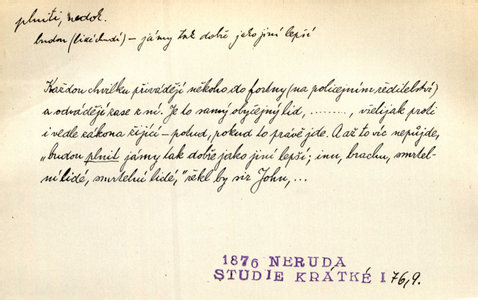 plniti, nedok.
budou (lidé chudí) – jámy tak dobře jako jiní lepší
Každou chvilku přivádějí někoho do fortny (na policejním ředitelství)
a odvádějí zase z ní. Je to samý obyčejný lid, ........, všelijak proti
i vedle zákona žijící – potud, pokud to právě jde. A až to víc nepůjde,
„budou plnit jámy tak dobře jako jiní lepší; inu, brachu, smrtel-
ní lidé, smrtelní lidé," řekl by sir John, ...
1876 NERUDA
STUDIE KRÁTKÉ I 76,9.